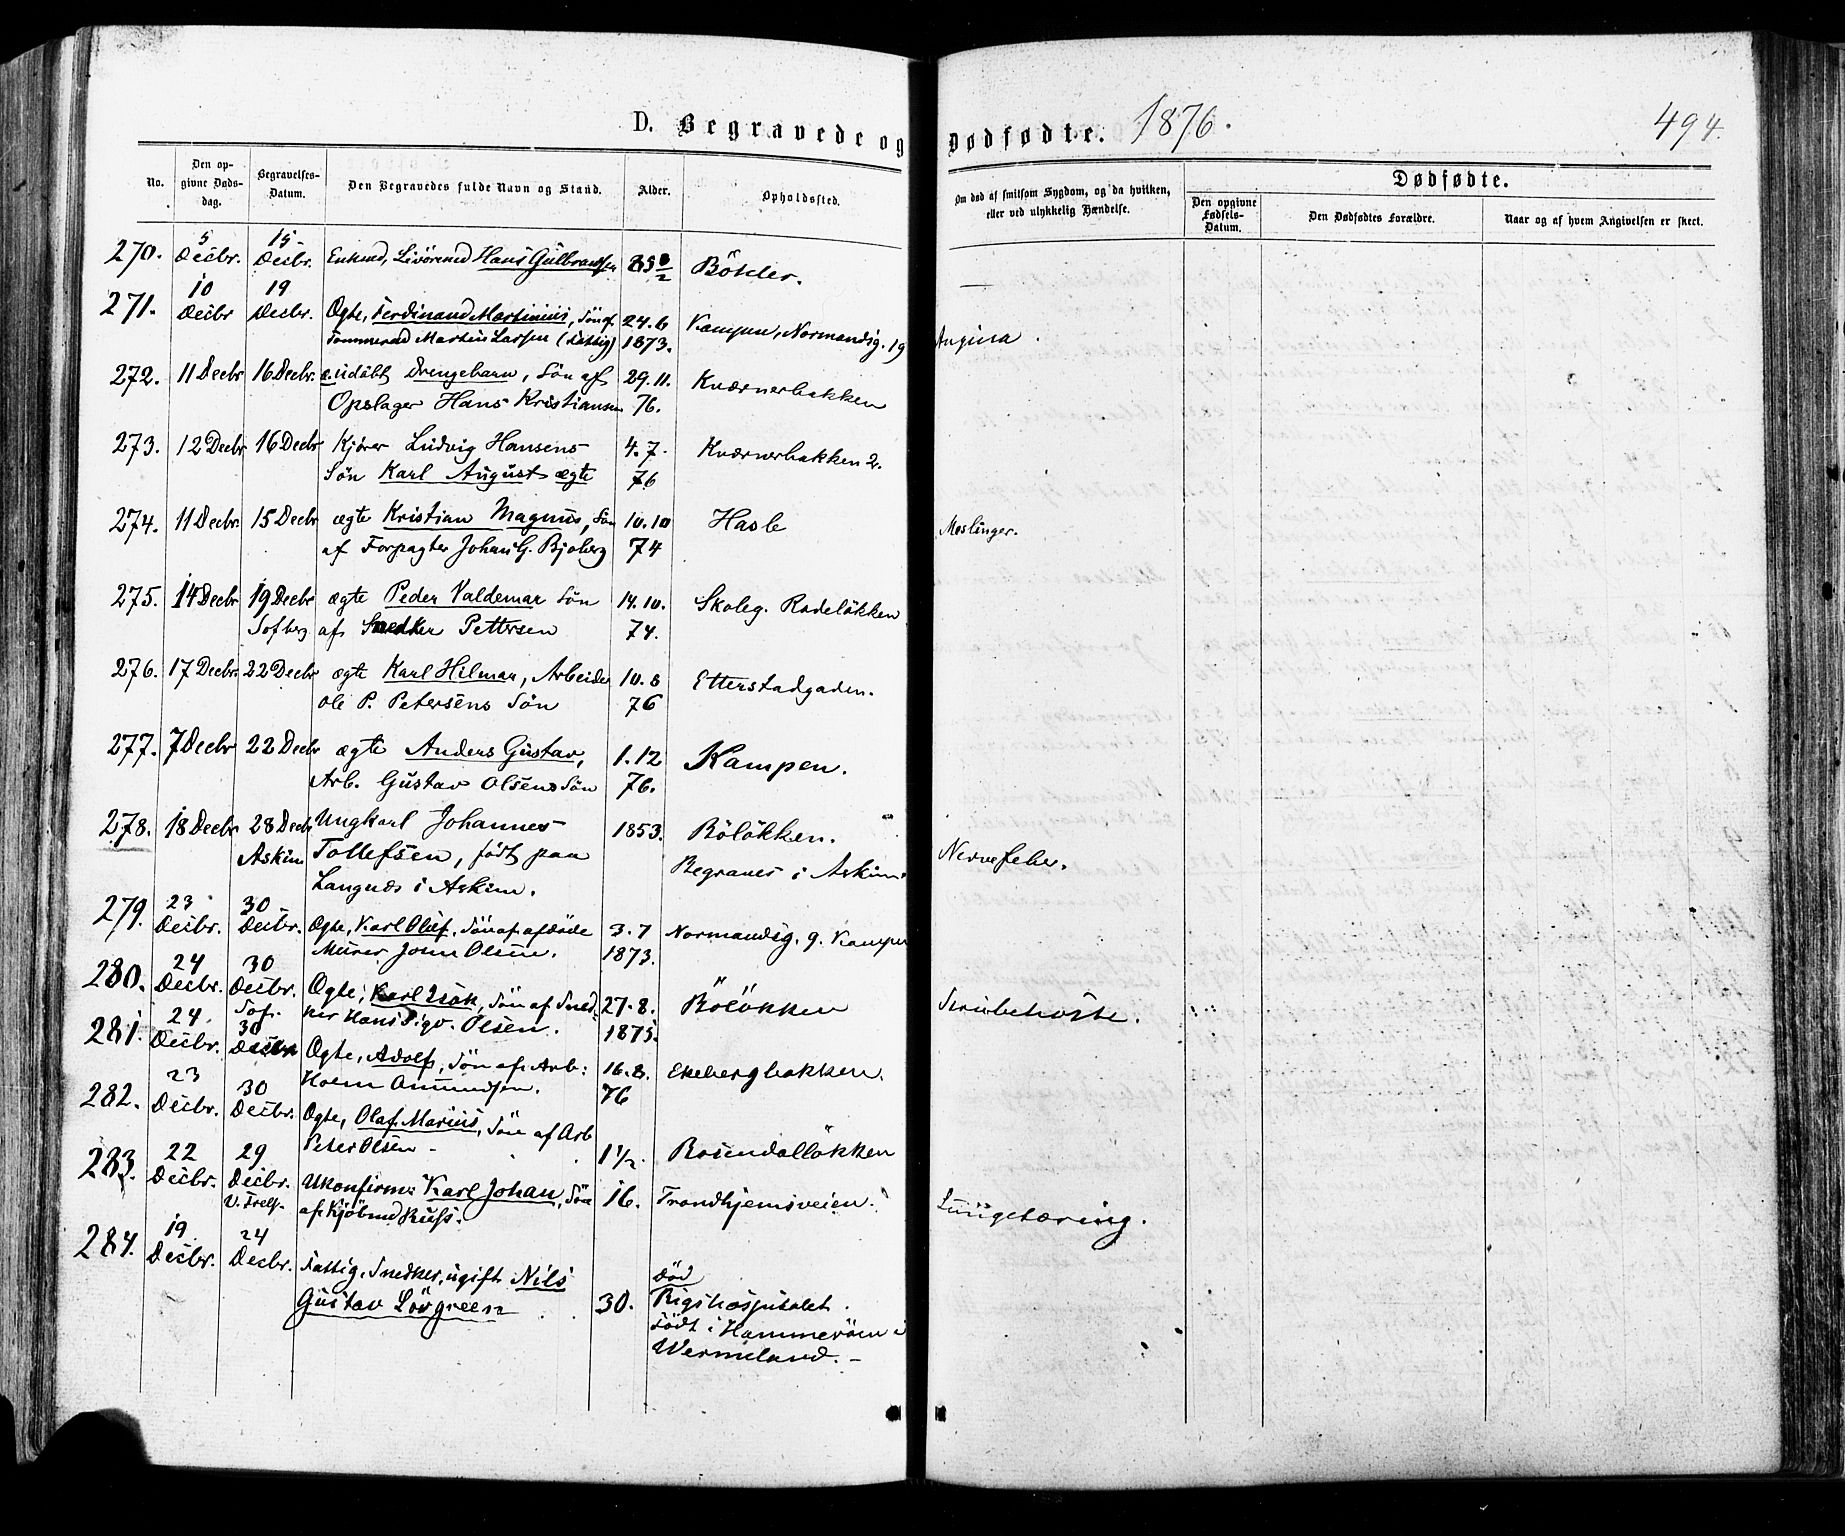 D. Begravede og Dødfødte. 1876. 494.
No.
Den opgivne Dødsdag.
Begravelses-Datum.
Den Begravedes fulde Navn og Stand.
Alder.
Opholdssted.
Om død af smitsom Sygdom, og da hvilken, eller ved ulykkelig Hændelse.
Dødfødte.
Den opgivne Fødsels-Datum.
Den Dødfødtes Forældre.
Naar og af hvem Angivelsen er skeet.
270. 5 Decbr. 15 Decbr. Enkmd, Hans Gulbrandsen
271. 10 Decbr 19 Decbr. Ægte, Ferdinand Martinius, Søn af 24.6 Kampen, Normandsg. 19 Angina.
Tømmermd Martin Larsen (fattig) 1873.
272. 11 Decbr 16 Decbr. æ. udøbt Drengebarn, Søn af 29.11. Kværnerbakken
Opslager Hans Kristiansen 76.
273. 12 Decbr 16 Decbr Kjører Ludvig Hansens 4.7. Kværnerbakken 2.
Søn Karl August ægte 76
274. 11 Decbr. 15 Decbr ægte Kristian Magnus, Søn 10.10 Hasle Meslinger.
af Forpagter Johan G. Bjoberg 74
275. 14 Decbr 19 Decbr ægte Peder Valdemar Søn 14.10. Skoleg. Rodeløkken
Sofbrg af Snedker Pettersen 74.
276. 17 Decbr. 22 Decbr ægte Karl Hilmar, Arbeider 10.8 Etterstadgaden.
Ole P. Petersens Søn 76
277. 7 Decbr 22 Decbr ægte Anders Gustav, 1.12 Kampen.
Arb. Gustav Olsens Søn 76.
278. 18 Decbr 28 Decbr Ungkarl Johannes 1853. Böløkken. Nervefeber.
Askim Tollefsen, født paa Begraves i Askim
Langnæs i Askim.
279. 23 Decbr. 30 Decbr. Ægte, Karl Oluf, Søn af afdøde 3.7 Normandsg. 9. Kampen
Murer John Olsen. 1873.
280. 24 Decbr. 30 Decbr. Ægte, Karl Isak, Søn af Sned- 27.8. Böløkken Strubehoste.
Sof. ker Hans Olsen. 1875.
281. 24 Decbr. 30 Decbr Ægte, Adolf, Søn af Arb: 16.8. Ekebergbakken.
Amundsen. 76
282. 23 Decbr. 30 Decbr. Ægte, Olaf Marius, Søn af Arb
Peter Olsen - 1½. Rosendalløkken
283. 22 Decbr. 29 Decbr. Ukonfirm: Karl Johan, Søn 16. Trondhjemsveien. Lungetæring.
V. Frels. af Kjøbmd Russ.
284. 19 Decbr. 24 Decbr. Fattig, Snedker, ugift Nils død
Gustav Lövgreen 30. Rigshospitalet.
født i Hammeröen i
Wermeland. -